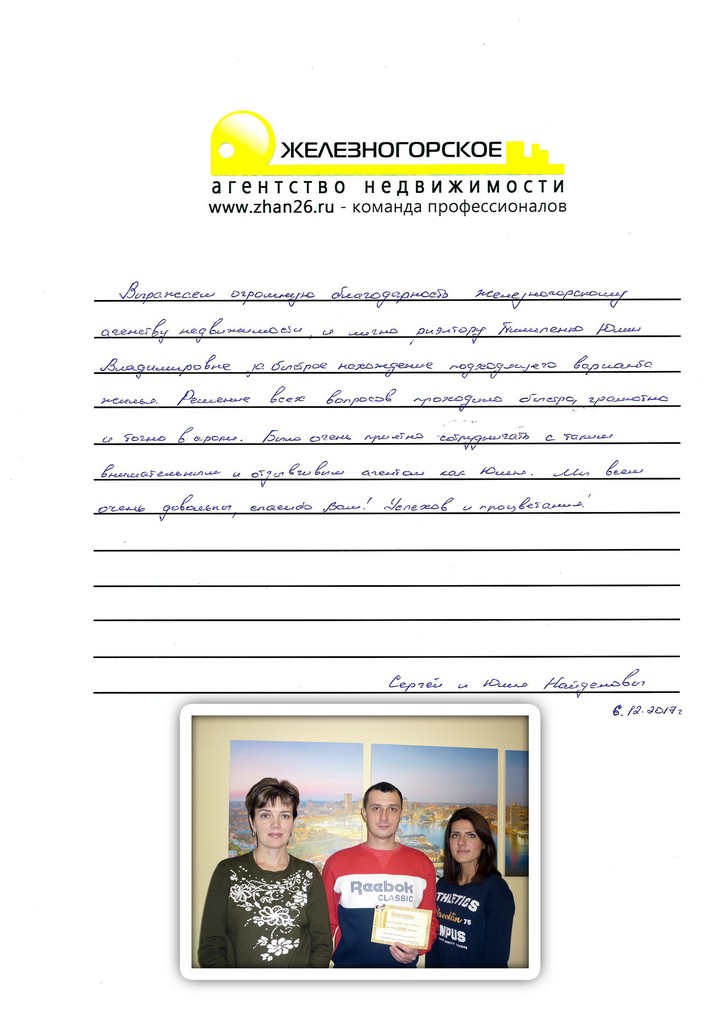 ЖЕЛЕЗНОГОРСКОЕ
агентство недвижимости
www.zhan26.ru - команда профессионалов
Выражаем огромную благодарность Железногорскому
агенству недвижимости, и лично риэлтору Пимиленко Юлии
Владимировне за быстрое нахождение подходящего варианта
жилья. Решение всех вопросов проходило быстро, грамотно
и точно в сроки. Было очень приятно сотрудничать с таким
внимательным и отзывчивым агентом как Юлия. Мы всем
очень довольны, спасибо Вам! Успехов и процветания!
Сергей и Юлия Найденович
6.12.2017г
Reebok
CLASSIC
ATHLETICS
Brooklin 75
MPUS